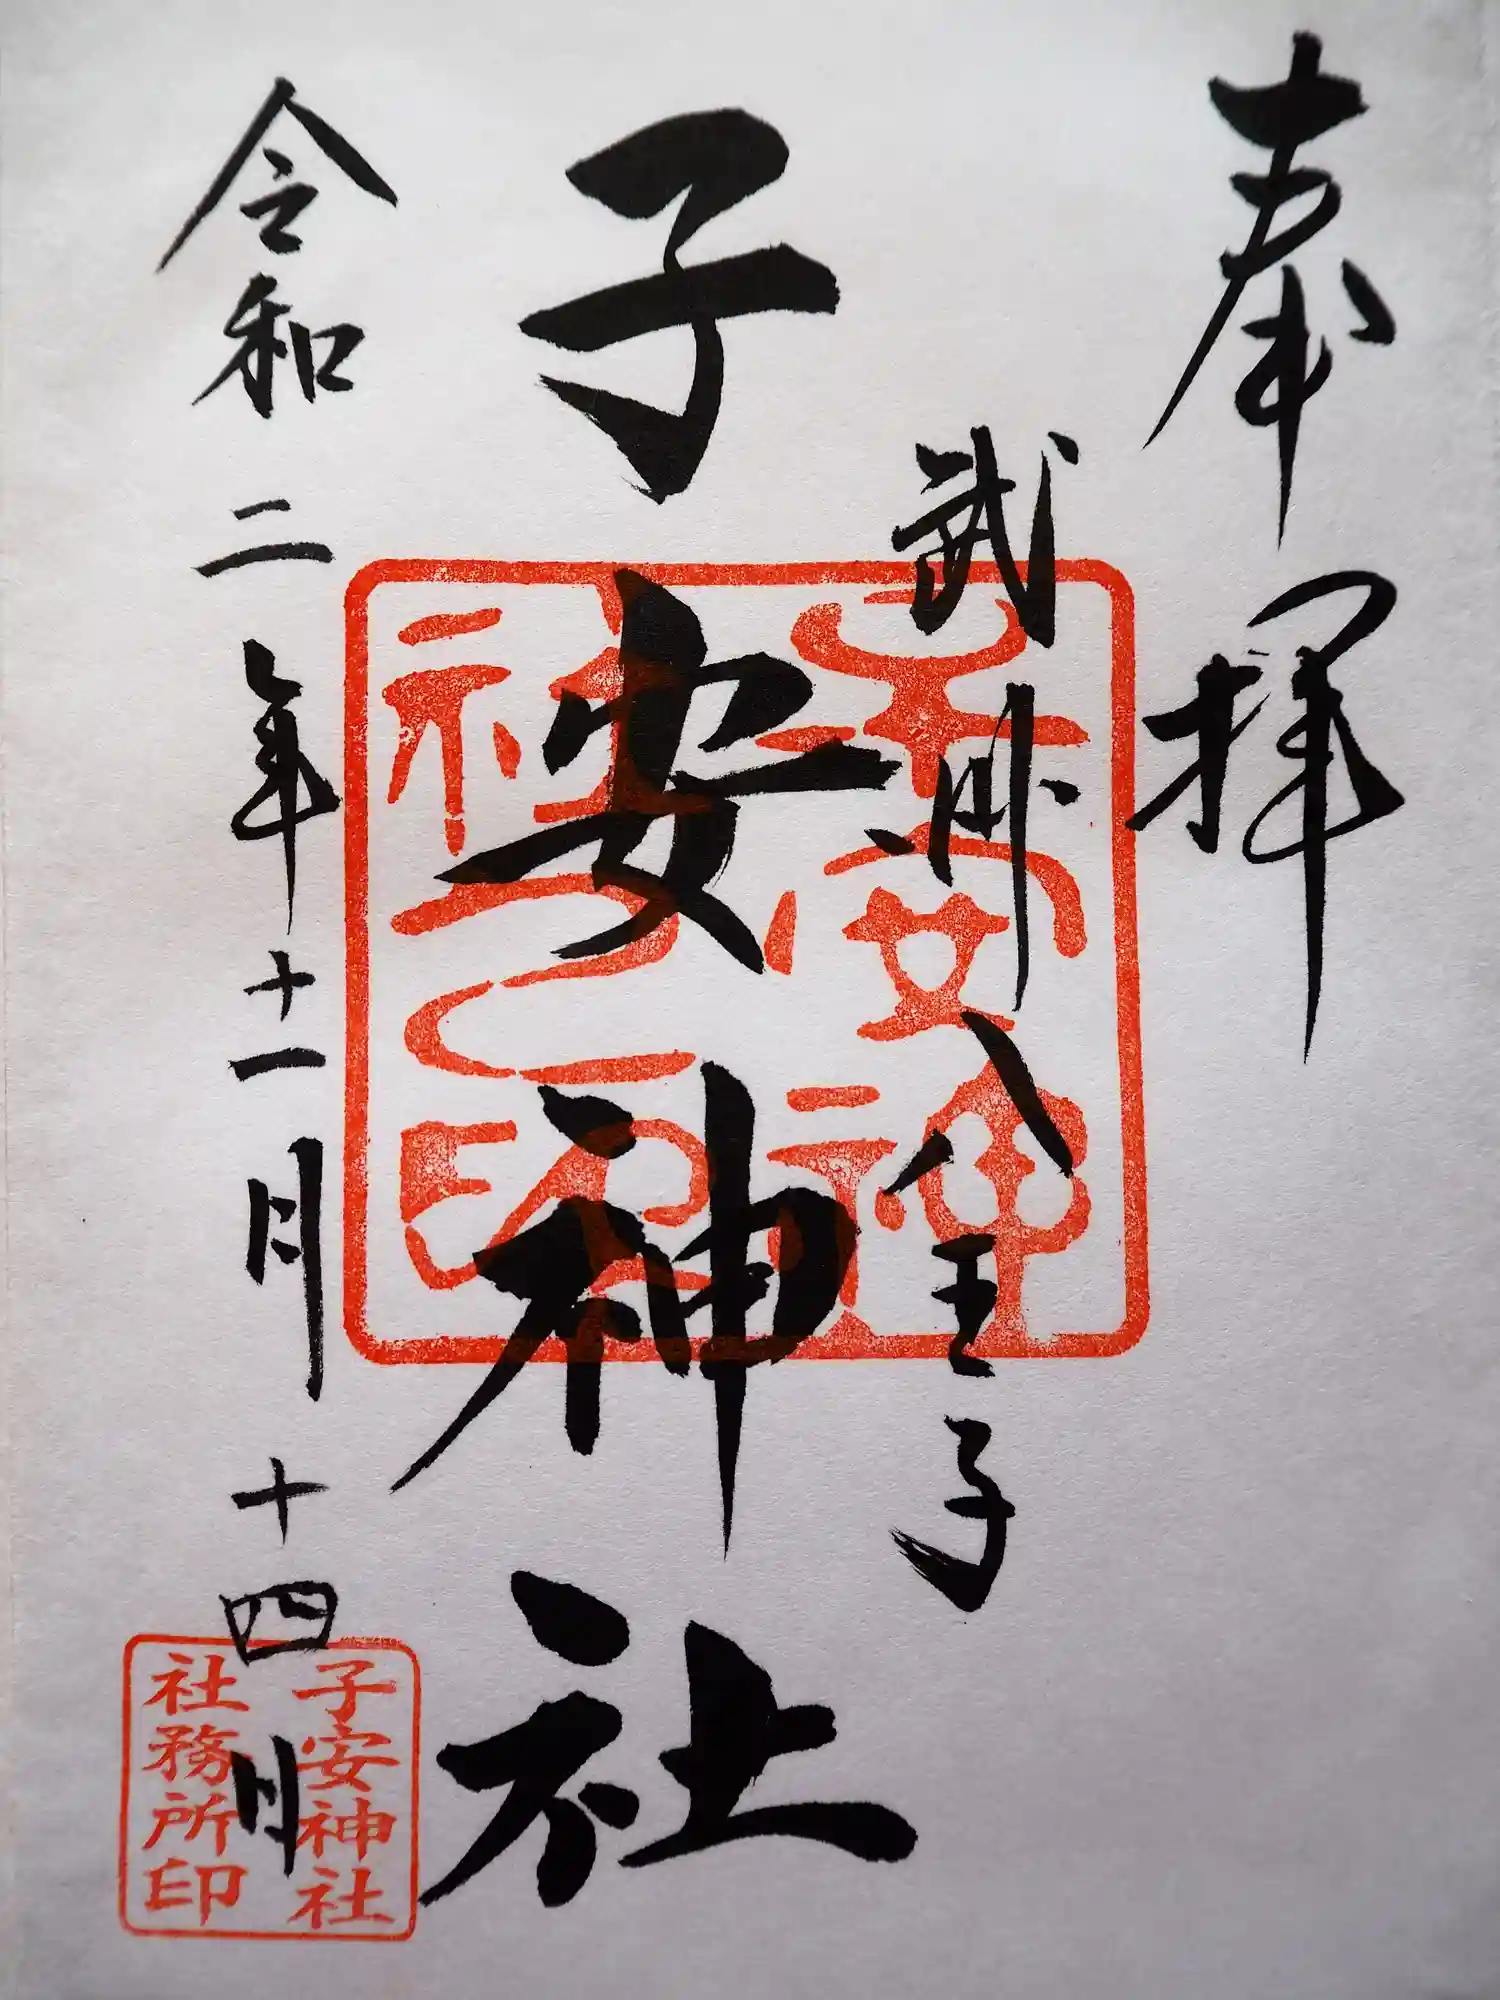 奉拝
武州八王子
子安神社
子安神
社之印
令和二年十一月十四日
子安神社
社務所印